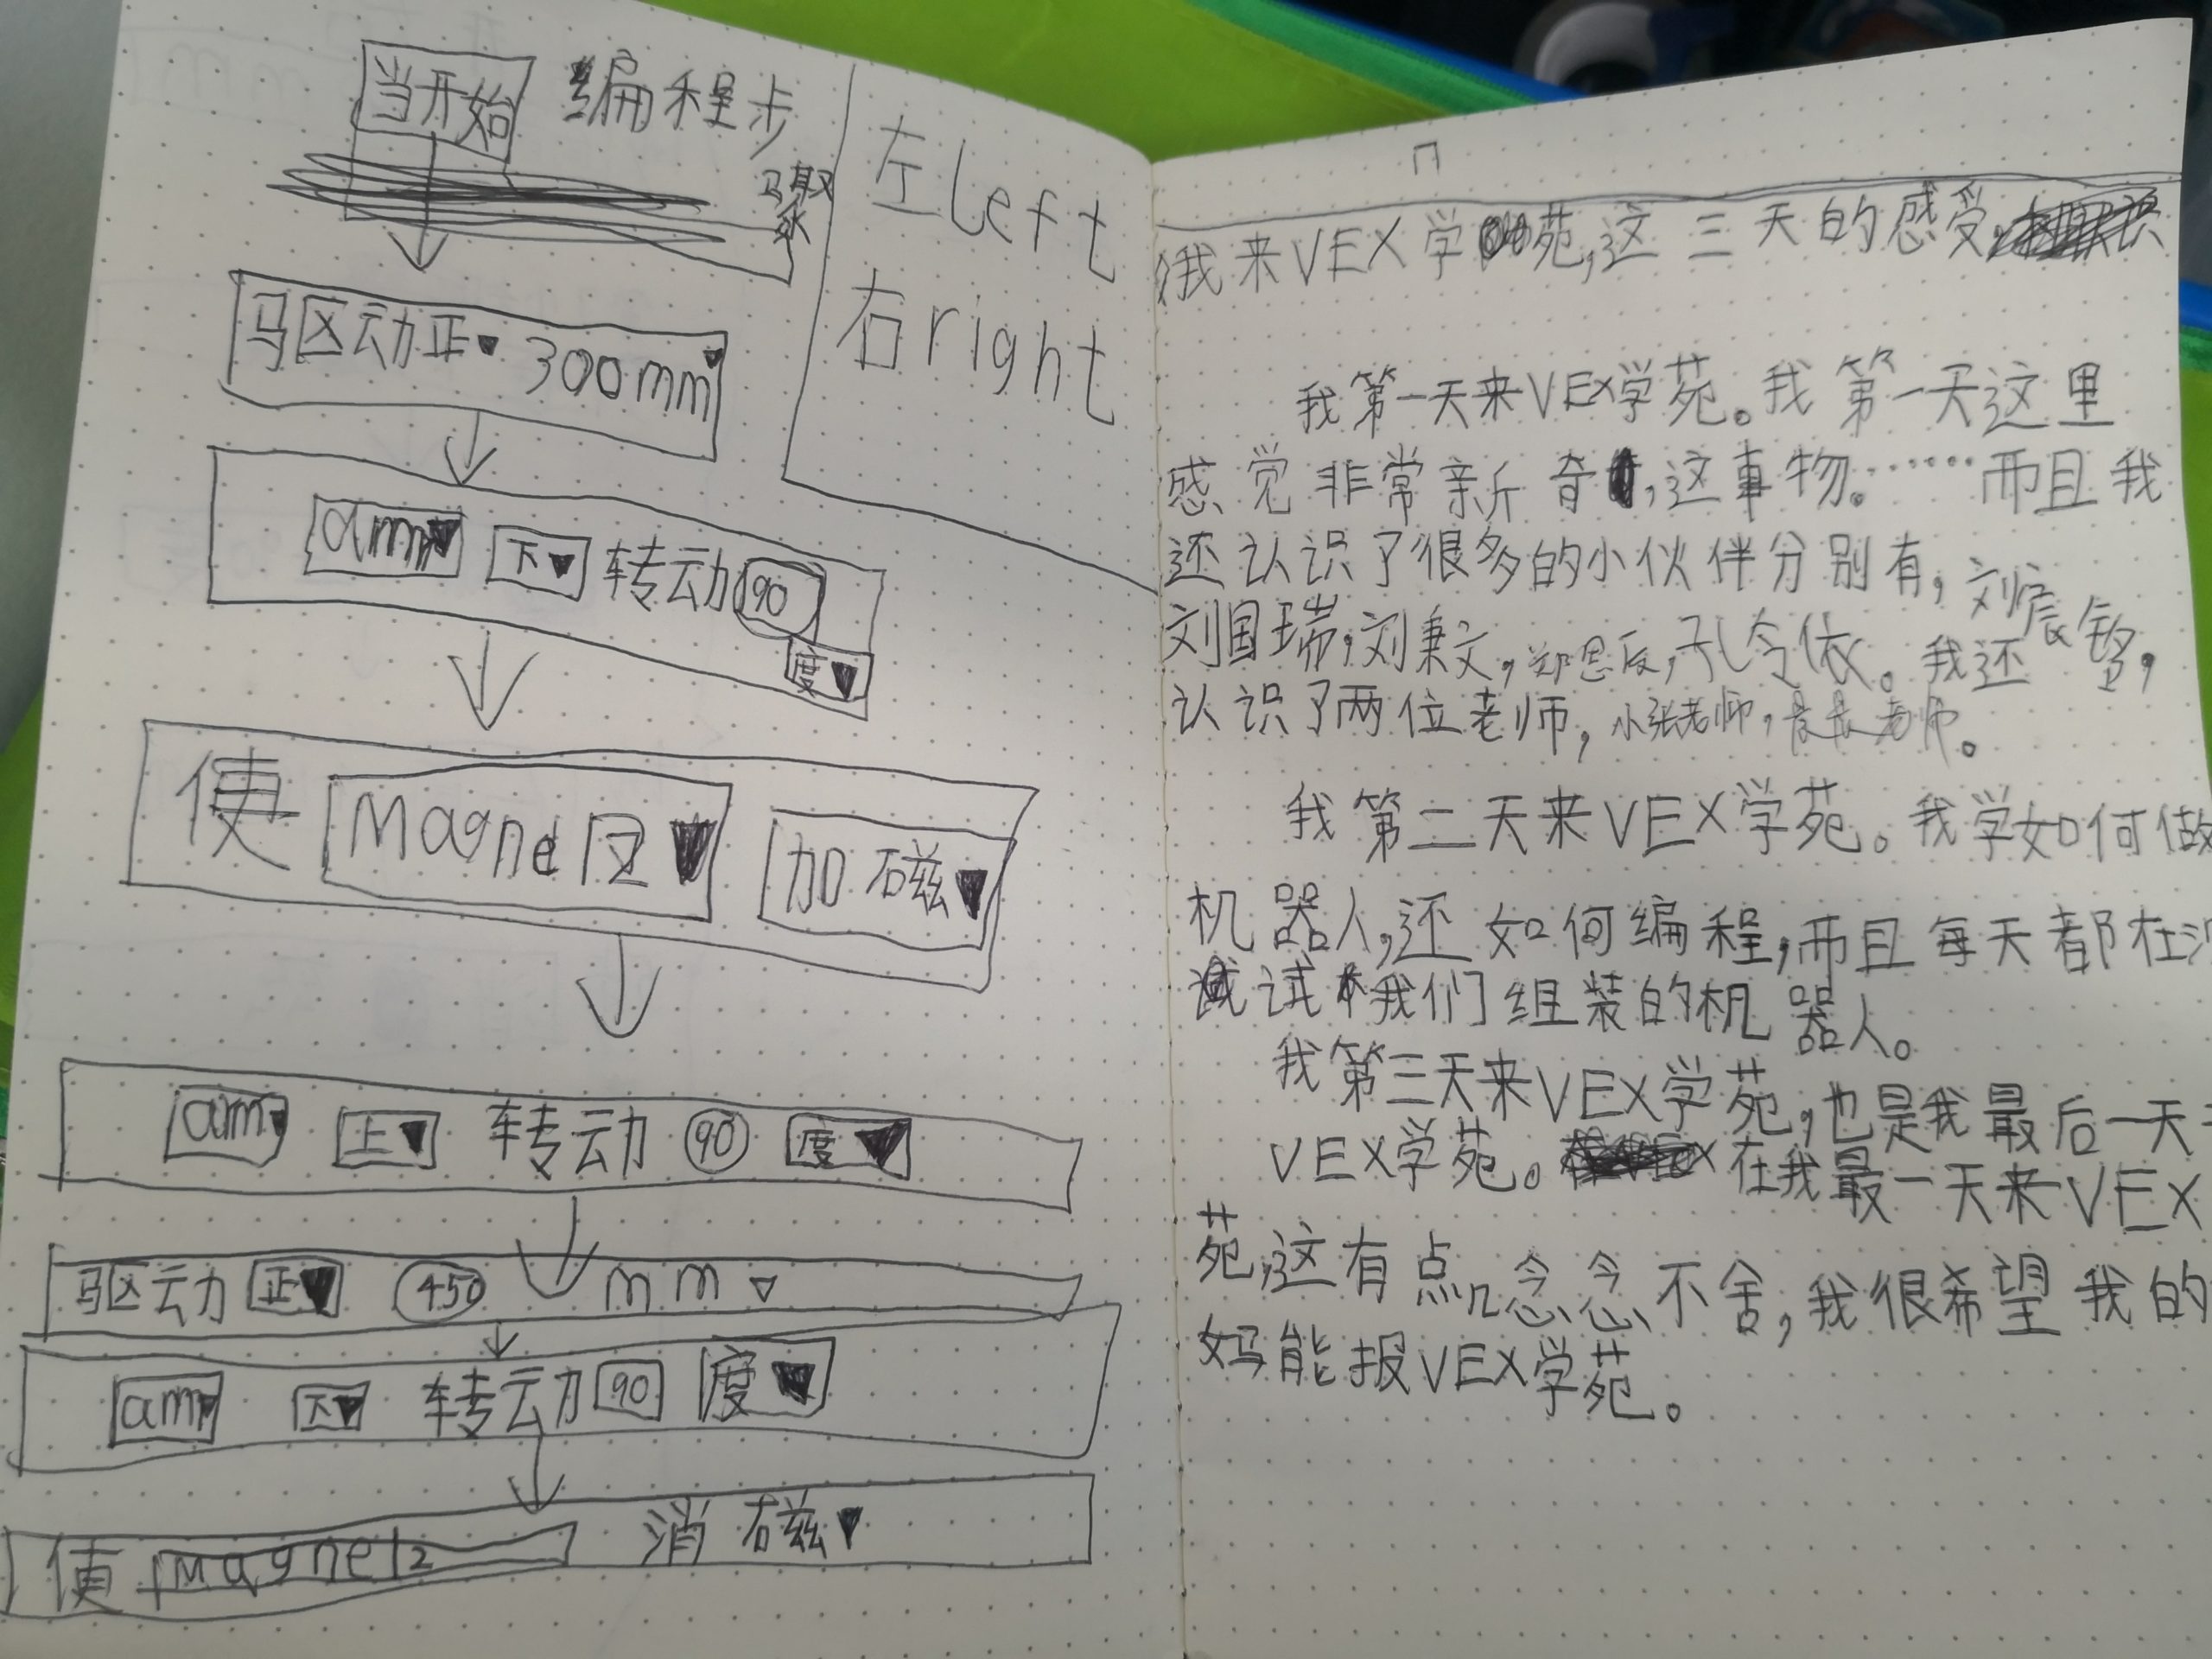 当开始 编程步
骤
左 left
右 right
驱动正 300mm
am 下 转动 90
度
使 Magne 加磁
am 上 转动 90 度
驱动 正 450 mm
am 下 转动 90 度
使 Magnet2 消磁
我来VEX学苑,这三天的感受
我第一天来VEX学苑。我第一天这里
感觉非常新奇,这事物。……而且我
还认识了很多的小伙伴分别有,刘宸铭,
刘国瑞,刘秉文,郑恩辰,孔令依。我还
认识了两位老师,小张老师,老师。
我第二天来VEX学苑。我学如何做
机器人,还如何编程,而且每天都在
试我们组装的机器人。
我第三天来VEX学苑,也是我最后一天
VEX学苑。在我最一天来VEX
苑,这有点儿念念不舍,我很希望我的
妈能报VEX学苑。